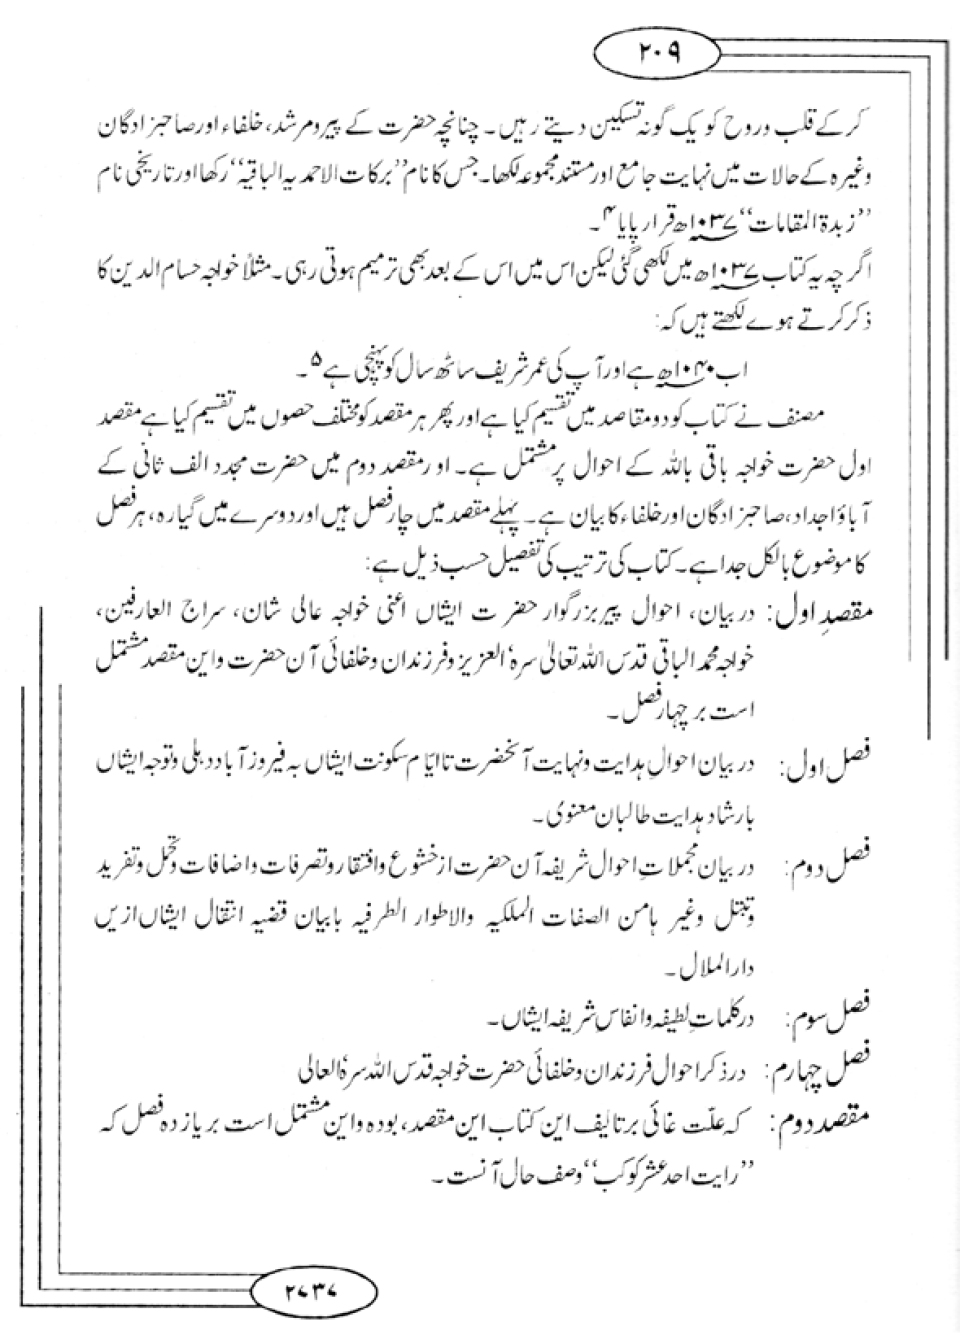 ۲۰۹
کر کے قلب و روح کو یک گونہ تسکین دیتے رہیں۔ چنانچہ حضرت کے پیرو مرشد، خلفاء اور صاحبزادگان
وغیرہ کے حالات میں نہایت جامع اور مستند مجموعہ لکھا۔ جس کا نام ”برکات الاحمدیہ الباقیہ“ رکھا اور تاریخی نام
”زبدۃ المقامات“ ۱۰۳۷ھ قرار پایا ۴۔
اگرچہ یہ کتاب ۱۰۳۷ھ میں لکھی گئی لیکن اس میں اس کے بعد بھی ترمیم ہوتی رہی۔ مثلاً خواجہ حسام الدین کا
ذکر کرتے ہوے لکھتے ہیں کہ:
اب ۱۰۴۰ھ ہے اور آپ کی عمر شریف ساٹھ سال کو پہنچی ہے ۵۔
مصنف نے کتاب کو دو مقاصد میں تقسیم کیا ہے اور پھر ہر مقصد کو مختلف حصوں میں تقسیم کیا ہے مقصد
اول حضرت خواجہ باقی باللہ کے احوال پر مشتمل ہے۔ اور مقصد دوم میں حضرت مجدد الف ثانی کے
آباؤ اجداد، صاحبزادگان اور خلفاء کا بیان ہے۔ پہلے مقصد میں چار فصل ہیں اور دوسرے میں گیارہ، ہر فصل
کا موضوع بالکل جدا ہے۔ کتاب کی ترتیب کی تفصیل حسب ذیل ہے:
مقصدِ اول: در بیان، احوال پیر بزرگوار حضرت ایشاں اعنی خواجہ عالی شان، سراج العارفین،
خواجہ محمد الباقی قدس اللہ تعالیٰ سرہٗ العزیز و فرزندان و خلفائی آن حضرت و این مقصد مشتمل
است بر چہار فصل۔
فصل اول: در بیان احوالِ ہدایت و نہایت آنحضرت تا ایّام سکونت ایشاں بہ فیروز آباد دہلی و توجہ ایشاں
بارشاد ہدایت طالبان معنوی۔
فصل دوم: در بیان مجملاتِ احوال شریفہ آن حضرت از خشوع و افتقار و تصرفات و اضافات و تحمل و تفرید
و تبتل و غیر ہا من الصفات الملکیہ والاطوار الطرفیہ با بیان قضیہ انتقال ایشاں ازیں
دارالملال۔
فصل سوم: در کلماتِ لطیفہ و انفاس شریفہ ایشاں۔
فصل چہارم: در ذکر احوال فرزندان و خلفائی حضرت خواجہ قدس اللہ سرہٗ العالی
مقصد دوم: کہ علّت غائی بر تالیف این کتاب این مقصد، بودہ و این مشتمل است بر یازدہ فصل کہ
”رایت احد عشر کوکب“ وصف حال آنست۔
۲۷۳۷